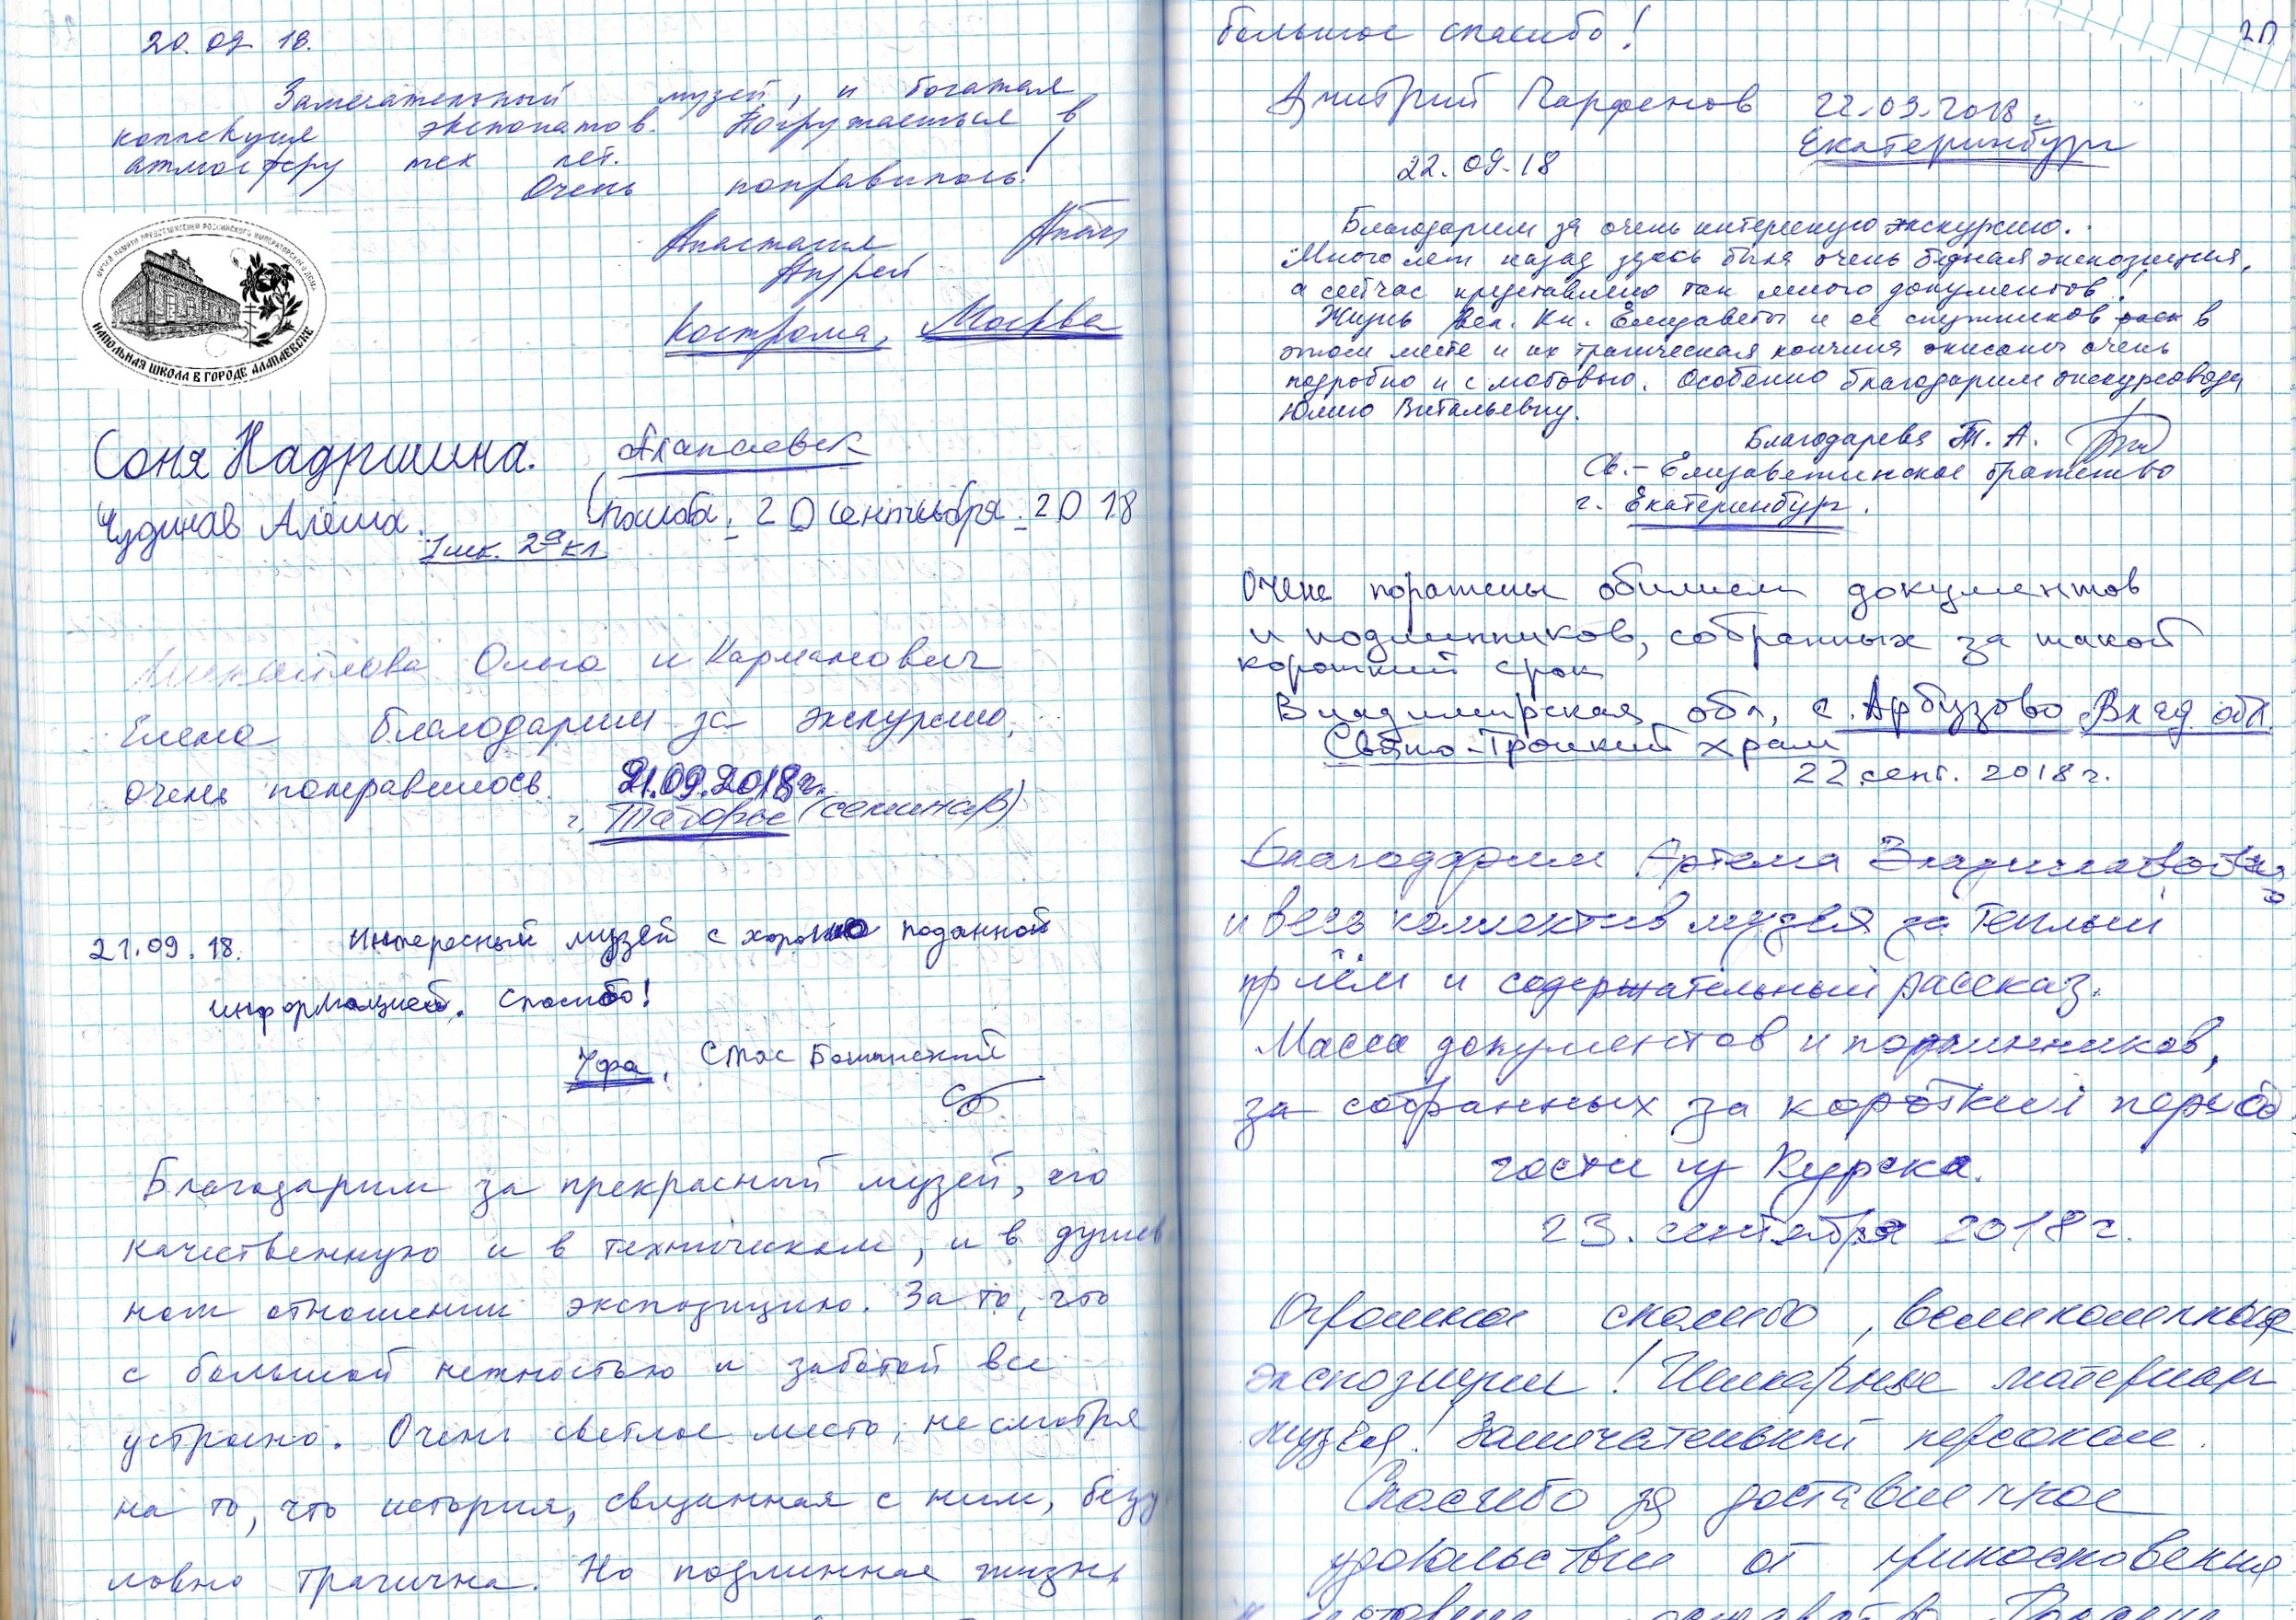 20.09 18.
Замечательный музей, и богатая
коллекция экспонатов. Погружаешься в
атмосферу тех лет.
Очень понравилось!
Анастасия
Андрей
Кострома, Москва
МУЗЕЙ ПАМЯТИ ПРЕДСТАВИТЕЛЕЙ РОССИЙСКОГО ИМПЕРАТОРСКОГО ДОМА
НАПОЛЬНАЯ ШКОЛА В ГОРОДЕ АЛАПАЕВСКЕ
Соня Надршина. Алапаевск
Чудинав Алёша. 20 сентьября. 2018
1 шк. 2а кл
Ольга и Карманович
Елена благодарим за экскурсию,
очень понравилось. 21.09.2018г.
г. (семинар)
21.09.18. Интересный музей с хорошо поданной
информацией. Спасибо!
Уфа, Стас
Благодарим за прекрасный музей, его
качественную и в техническом, и в душев
ном отношении экспозицию. За то, что
с большой нежностью и заботой все
устроено. Очень светлое место, не смотря
на то, что история, связанная с ним, безу
ловно трагична. Но подлинная жизнь
большое спасибо!
Дмитрий Парфенов 22.09.2018г.
Екатеринбург
22.09.18
Благодарим за очень интересную экскурсию.
Много лет назад здесь была очень бедная экспозиция,
а сейчас представлено так много документов!
Жизнь Вел. Кн. Елизаветы и ее спутников в
этом месте и их трагическая кончина описаны очень
подробно и с любовью. Особенно благодарим экскурсовода
Юлию Витальевну.
Благодарева Т. А.
Св.- Елизаветинское братство
г. Екатеринбург.
Очень поражены обилием документов
и подлинников, собранных за такой
короткий срок
Владимирская обл, с. Арбузово Влад. обл.
Свято-Троицкий храм
22 сент. 2018 г.
Благодарим Артема
и весь коллектив музея за теплый
приём и содержательный рассказ.
Масса документов и подлинников,
за собранных за короткий период
гости из Курска.
23. сентября 2018 г.
Огромное спасибо, великолепные
экспозиции! Шикарные материалы
музея! Замечательный персонал.
Спасибо за доставленное
удовольствие от прикосновения